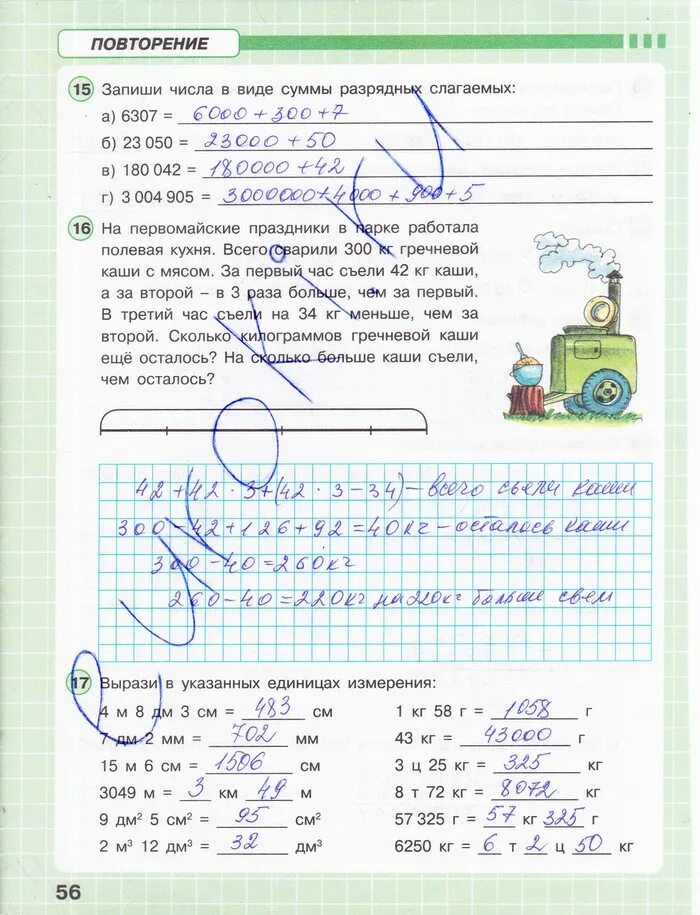 ПОВТОРЕНИЕ
15 Запиши числа в виде суммы разрядных слагаемых:
а) 6307 = 6000 + 300 + 7
б) 23 050 = 23000 + 50
в) 180 042 = 180000 + 42
г) 3 004 905 = 3000000 + 4000 + 900 + 5
16 На первомайские праздники в парке работала
полевая кухня. Всего сварили 300 кг гречневой
каши с мясом. За первый час съели 42 кг каши,
а за второй – в 3 раза больше, чем за первый.
В третий час съели на 34 кг меньше, чем за
второй. Сколько килограммов гречневой каши
ещё осталось? На сколько больше каши съели,
чем осталось?
42 + (42 · 3 + (42 · 3 – 34) – всего съели каши
300 – 42 + 126 + 92 = 40 кг – осталось каши
300 – 40 = 260 кг
260 – 40 = 220 кг на 220 кг больше съели
17 Вырази в указанных единицах измерения:
4 м 8 дм 3 см = 483 см 1 кг 58 г = 1058 г
7 дм 2 мм = 702 мм 43 кг = 43000 г
15 м 6 см = 1506 см 3 ц 25 кг = 325 кг
3049 м = 3 км 49 м 8 т 72 кг = 8072 кг
9 дм² 5 см² = 95 см² 57 325 г = 57 кг 325 г
2 м³ 12 дм³ = 32 дм³ 6250 кг = 6 т 2 ц 50 кг
56